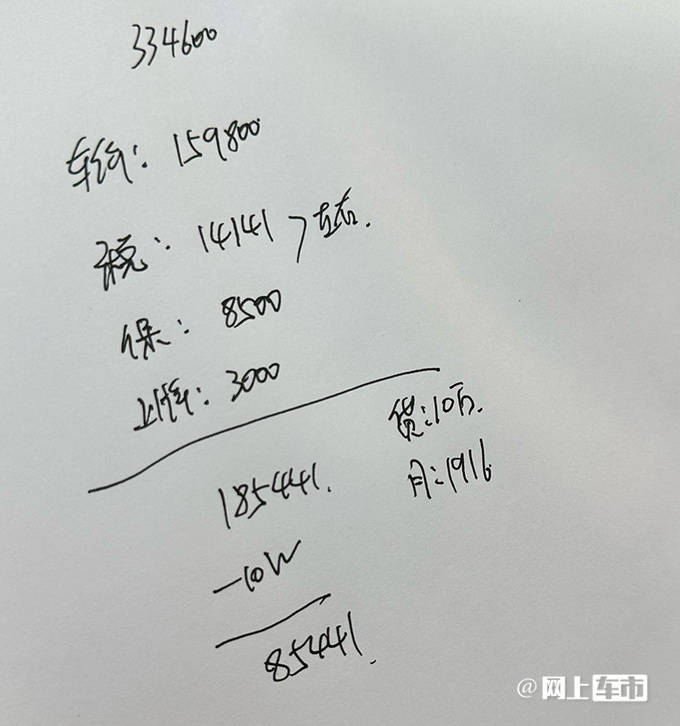 334600
车价：159800
税：14141 > 左右.
保：8500
上牌：3000
贷：10万.
月：1916
185441.
-10W
85441.
@网上车市